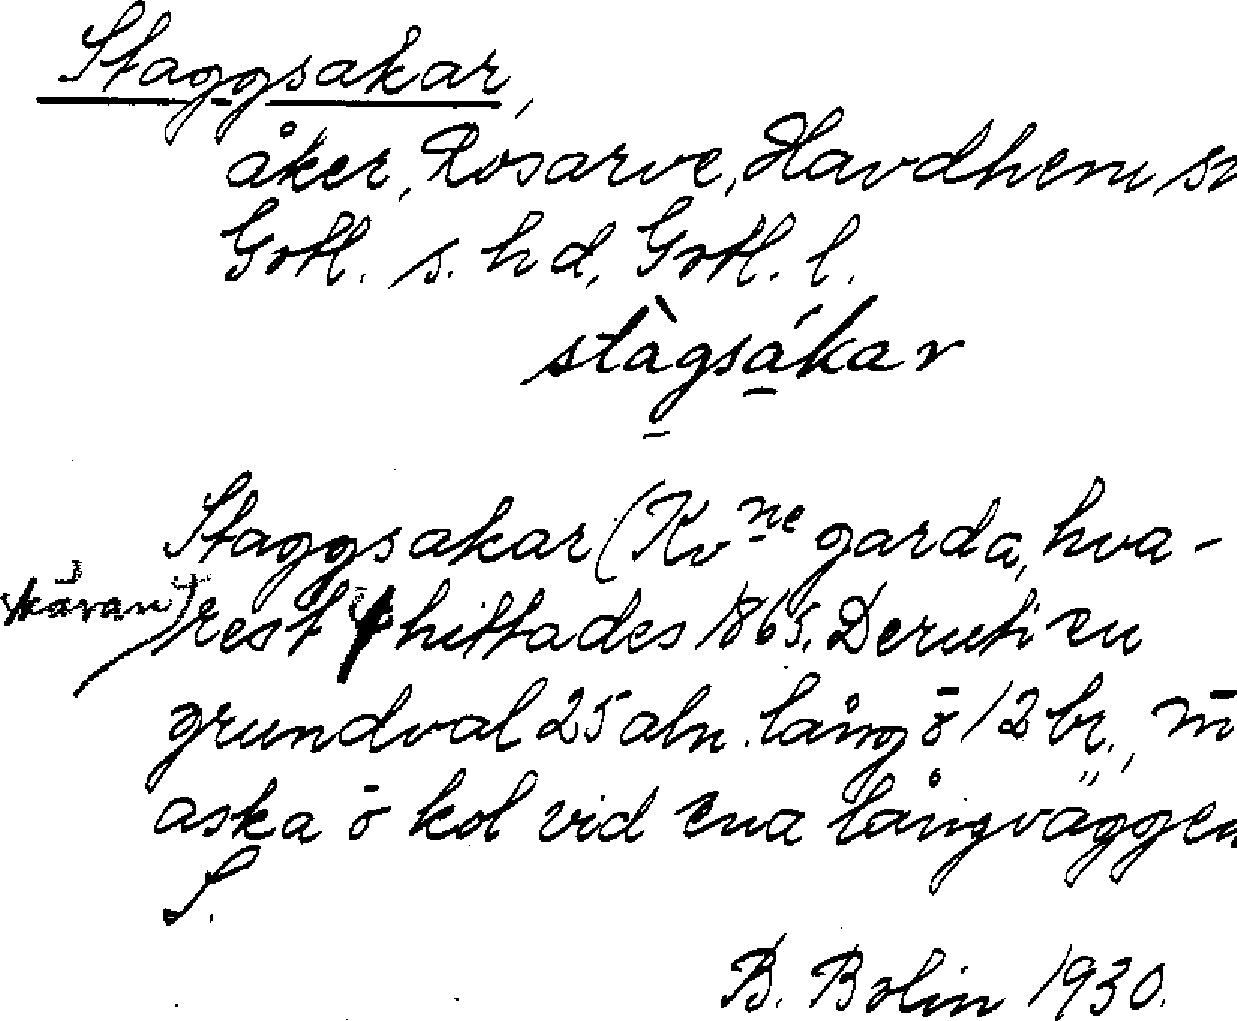 Staggsakar,
åker, Rosarve, Havdhem sn
Gotl. s. hd, Gotl. l.
stàgsákar
Staggsakar (Kvne garda, hva-
rest hittades 1865. Deruti en
grundval 25 aln. lång ō 12 br., m̄
aska ō kol vid ena långväggen
S.
B. Bolin 1930.